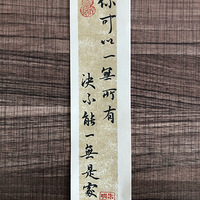 你可以一無所有
決不能一無是處